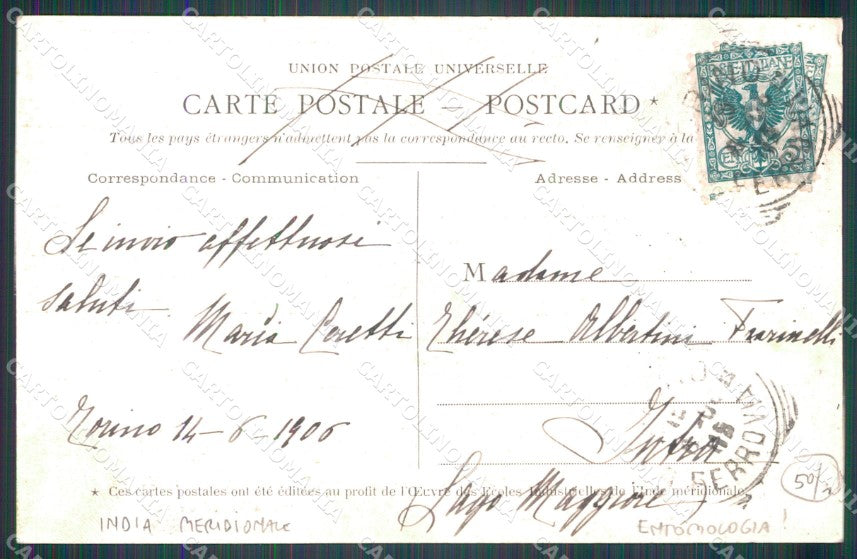 UNION POSTALE UNIVERSELLE
CARTE POSTALE - POSTCARD *
Tous les pays étrangers n'admettent pas la correspondance au recto. Se renseigner à la
Correspondance - Communication
Adresse - Address
Le invio affettuosi
saluti
Maria Ceretti
Torino 14-6 1906
Madame
Thérese Albertini
Intra
Lago Maggiore
* Ces cartes postales ont été éditées au profit de l'Œuvre des Ecoles Industrielles de l'Inde méridionale
INDIA MERIDIONALE
ENTOMOLOGIA!
50/2
CARTOLINOMANIA